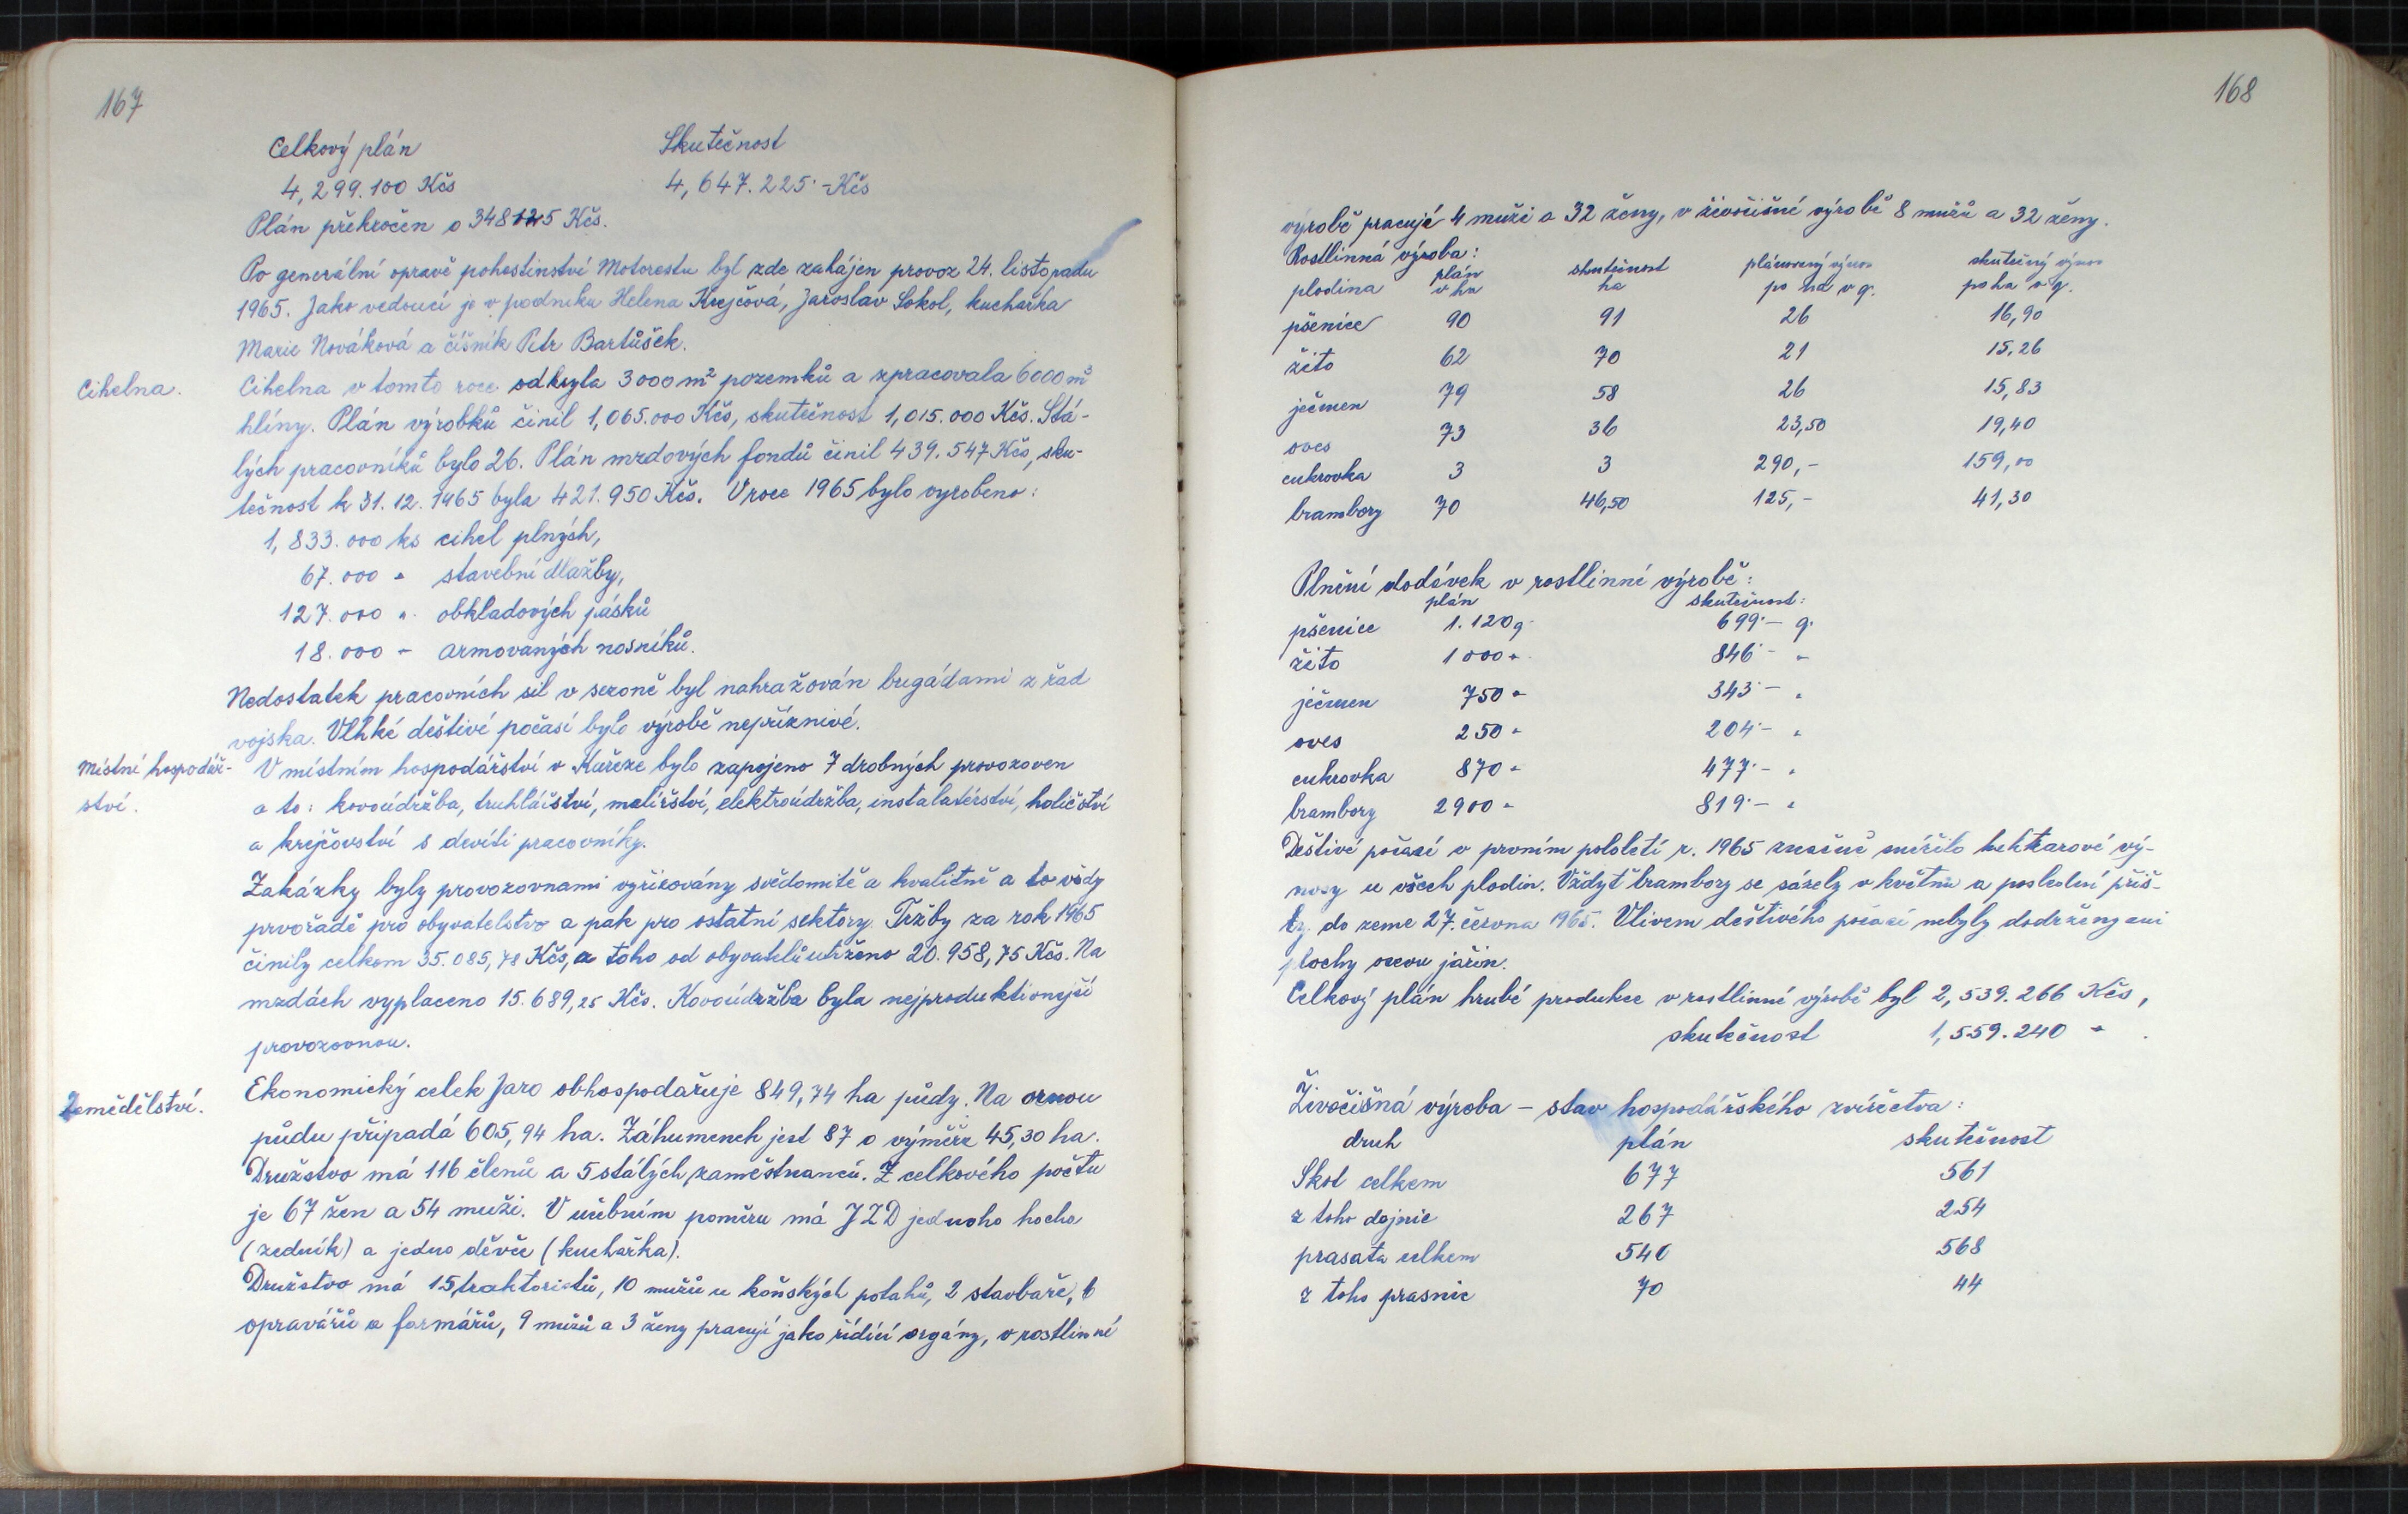 167
Celkový plán Skutečnost
4,299.100 Kčs 4,647.225.-Kčs
Plán překročen o 348125 Kčs.
Po generální opravě pohostinství Motorestu byl zde zahájen provoz 24. listopadu
1965. Jako vedoucí je v podniku Helena Krejčová, Jaroslav Sokol, kuchařka
Marie Nováková a číšník Petr Bartůšek.
Cihelna.
Cihelna v tomto roce odkryla 3000 m² pozemků a zpracovala 6000 m³
hlíny. Plán výrobků činil 1,065.000 Kčs, skutečnost 1,015.000 Kčs. Stá-
lých pracovníků bylo 26. Plán mzdových fondů činil 439.547 Kčs, sku-
tečnost k 31.12.1965 byla 421.950 Kčs. V roce 1965 bylo vyrobeno:
1,833.000 ks cihel plných,
67.000 " stavební dlažby,
127.000 " obkladových pásků
18.000 - armovaných nosníků.
Nedostatek pracovních sil v sezoně byl nahražován brigádami z řad
vojska. Vlhké deštivé počasí bylo výrobě nepříznivé.
Místní hospodář-
ství.
V místním hospodářství v Kařeze bylo zapojeno 7 drobných provozoven
a to: kovoúdržba, truhlářství, malířství, elektroúdržba, instalatérství, holičství
a krejčovství s devíti pracovníky.
Zakázky byly provozovnami vyřizovány svědomitě a kvalitně a to vždy
prvořadě pro obyvatelstvo a pak pro ostatní sektory. Tržby za rok 1965
činily celkem 35.085,78 Kčs, z toho od obyvatelů utrženo 20.958,75 Kčs. Na
mzdách vyplaceno 15.689,25 Kčs. Kovoúdržba byla nejproduktivnější
provozovnou.
Zemědělství.
Ekonomický celek Jaro obhospodařuje 849,74 ha půdy. Na ornou
půdu připadá 605,94 ha. Záhumenek jest 87 o výměře 45,30 ha.
Družstvo má 116 členů a 5 stálých zaměstnanců. Z celkového počtu
je 67 žen a 54 muži. V učebním poměru má JZD jednoho hocha
(zedník) a jedno děvče (kuchařka).
Družstvo má 15 traktoristů, 10 mužů u koňských potahů, 2 stavbaře, 6
opravářů a farmářů, 9 mužů a 3 ženy pracují jako řídící orgány, v rostlinné
168
výrobě pracují 4 muži a 32 ženy, v živočišné výrobě 8 mužů a 32 ženy.
Rostlinná výroba:
plodina plán v ha skutečnost ha plánovaný výnos po ha v q. skutečný výnos po ha v q.
pšenice 90 91 26 16,90
žito 62 70 21 15,26
ječmen 79 58 26 15,83
oves 73 36 23,50 19,40
cukrovka 3 3 290,- 159,00
brambory 70 46,50 125,- 41,30
Plnění dodávek v rostlinné výrobě:
plán skutečnost:
pšenice 1.120 q. 699.- q.
žito 1000 " 846.- "
ječmen 750 " 343.- "
oves 250 " 204.- "
cukrovka 870 " 477.- "
brambory 2900 " 819.- "
Deštivé počasí v prvním pololetí r. 1965 značně snížilo hektarové vý-
nosy u všech plodin. Vždyť brambory se sázely v květnu a poslední přiš-
ly do zeme 27. června 1965. Vlivem deštivého počasí nebyly dodrženy ani
plochy osevu jařin.
Celkový plán hrubé produkce v rostlinné výrobě byl 2,539.266 Kčs,
skutečnost 1,559.240 " .
Živočišná výroba - stav hospodářského zvířectva:
druh plán skutečnost
Skot celkem 677 561
z toho dojnic 267 254
prasata celkem 540 568
z toho prasnic 70 44